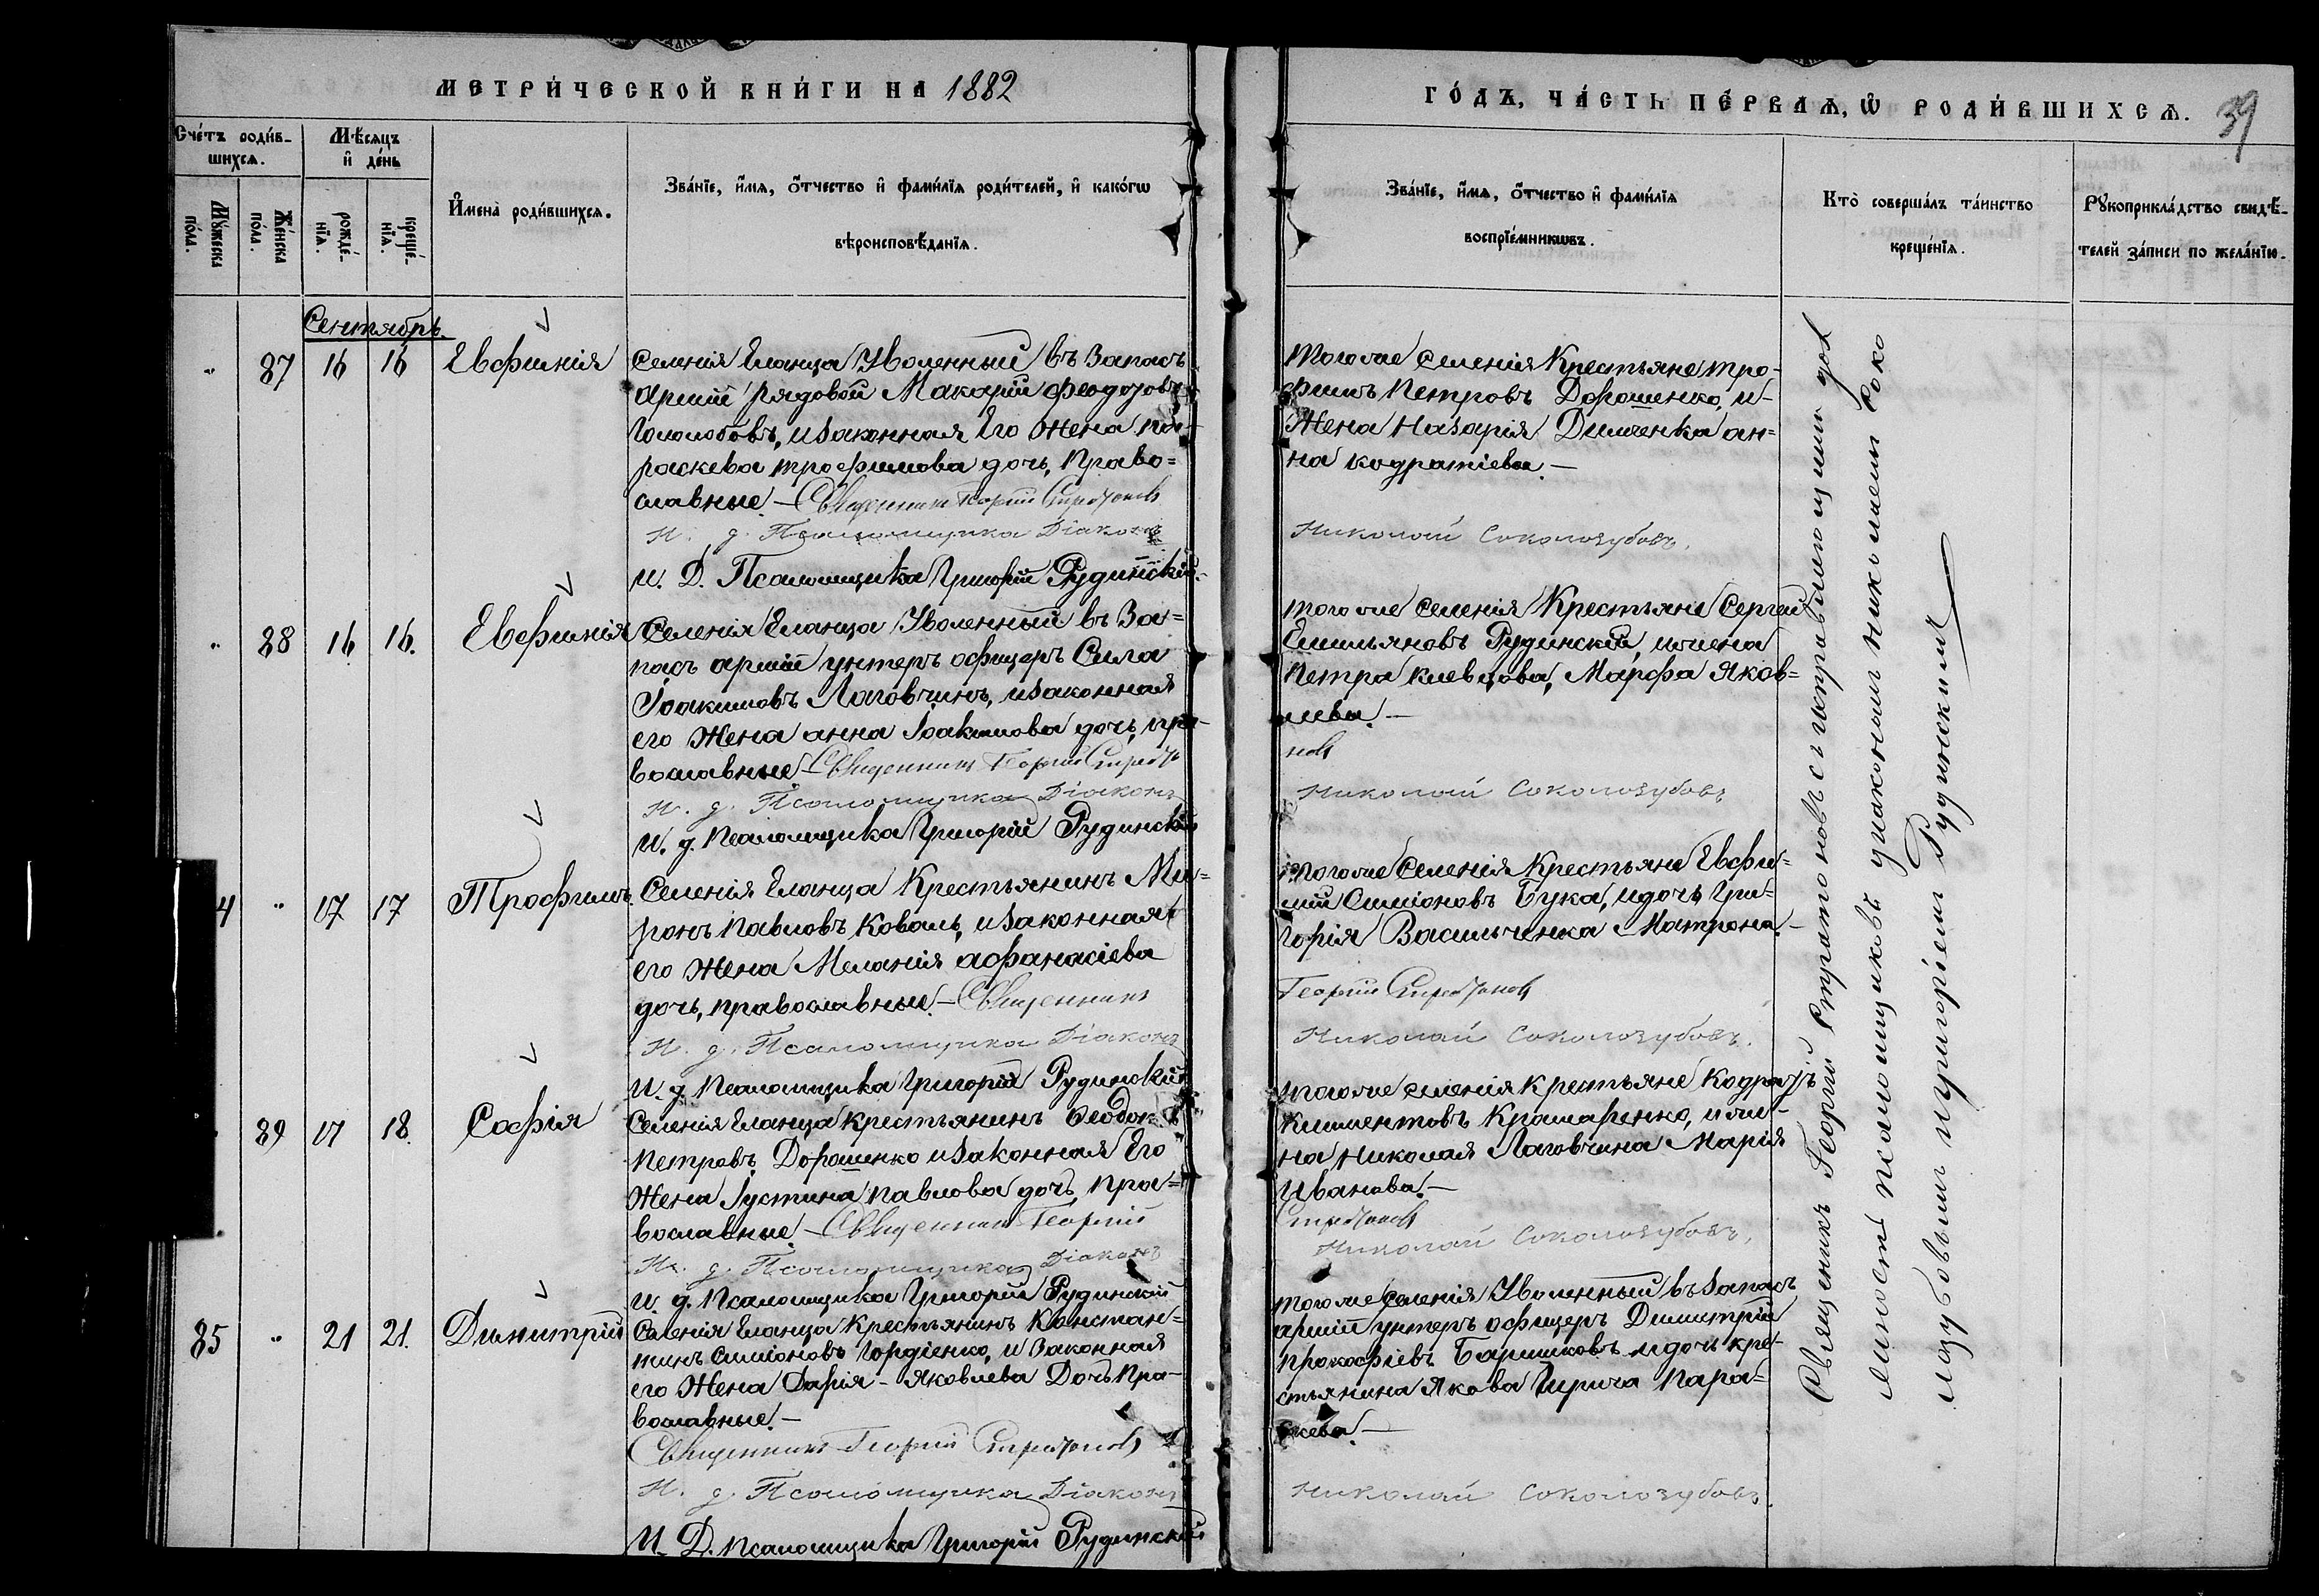 МЕТРИ́ЧЕСКОЙ КНИ́ГИ НА 1882
ГО́ДЪ, ЧА́СТЬ ПЕ́РВАѦ, Ѡ҆ РОДИ́ВШИХСѦ. 39
Сче́тъ роди́в-
шихсѧ.
Мѣ́сѧцъ
и҆ де́нь
Мꙋ́жеска
по́ла.
Же́нска
по́ла.
рожде́-
нїѧ.
креще́-
нїѧ.
И҆мена̀ роди́вшихсѧ.
Зва́нїе, и҆́мѧ, ѻ҆́тчество и҆ фами́лїѧ роди́телей, и҆ како́гѡ
вѣроисповѣ́данїѧ.
Зва́нїе, и҆́мѧ, ѻ҆́тчество и҆ фами́лїѧ
воспрїе́мникѡвъ.
Кто̀ соверша́лъ та́инство
креще́нїѧ.
Рꙋкоприкла́дство свидѣ́-
телей за́писи по жела́нїю.
Сентябрь.
" 87 16 16 Евфимія
Селенія Еланца Уволенный въ Запасъ
Арміи рядовой Макарій Феодоровъ
Гололобовъ, и законная Его Жена Па-
раскева трофимова дочь, Право=
славные.— Священникъ Георгій Стратоновъ
И. д. Псаломщика Діаконъ
И. Д. Псаломщика Григорій Рудинскій.
Тогоже селенія Крестьяне Тро-
фимъ Петровъ Дорошенко, и-
Жена Назарія Димченка Ан=
на кодратіева.—
Николай Соколозубовъ.
" 88 16 16. Евфимія
Селенія Еланца Уволенный въ За=
пасъ арміи унтеръ офицеръ Сила
Іоакимовъ Лаговчинъ, и законная
его Жена анна Іоакимова дочь, пра-
вославные.— Священникъ Георгій Страто
И. д. Псаломщика Діаконъ
И. д. Псаломщика Григорій Рудинскій
Тогоже селенія Крестьяне Сергій
Емильяновъ Рудинскій, и жена
Петра Клевцова, Марфа Яков=
лева.—
новъ
Николай Соколозубовъ
4 " 17 17 Трофимъ.
Селенія Еланца Крестьянинъ Ми=
ронъ Павловъ Коваль, и законная
его Жена Меланія афанасіева
дочь, православные.— Священникъ
И. д. Псаломщика Діаконъ
И. д. Псаломщика Григорій Рудинскій
Тогоже Селенія Крестьяне Евфи=
мій Симіоновъ Бука, и дочь Гри-
горія Васильченка Матрона.—
Георгій Стратоновъ
Николай Соколозубовъ.
89 17 18. Софія
Селенія Еланца крестьянинъ
Петровъ Дорошенко и законная Его
Жена Іустина Павлова дочь, Пра=
вославные.— Священникъ Георгій
И. д. Псаломщика Діаконъ
И. д. Псаломщика Григорій Рудинскій
Тогоже селенія Крестьяне Кодратъ
Климентовъ Крамаренко, и же-
на Николая Лаговчина Марія
Иванова.—
Стратоновъ
Николай Соколозубовъ.
85 " 21 21. Димитрій
Селенія Еланца Крестьянинъ Констан=
тинъ Симіоновъ Гордіенко, и Законная
его Жена Дарія - Яковлева Дочь Пра-
вославные.—
Священникъ Георгій Стратоновъ
И. д. Псаломщика Діаконъ
И. Д. Псаломщика Григорій Рудинскій
Тогоже селенія Уволенный въ запасъ
арміи унтеръ офицеръ Димитрій
Прокофіевъ Баришковъ и дочь кре-
стьянина Якова Гирича Пара=
скева.—
Николай Соколозубовъ.
Священникъ Георгій Стратоновъ с исправляющими дол
жность псаломщиковъ діакономъ Николаемъ Соко
лозубовымъ и Григоріемъ Рудинскимъ